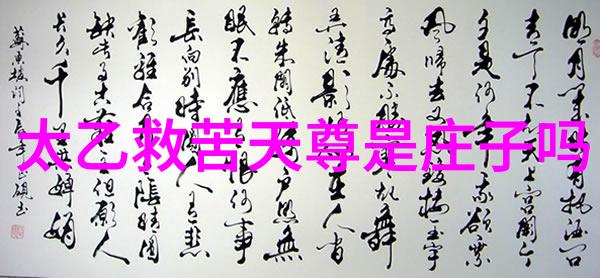 太乙救苦天尊是庄子吗
明月几时有把酒问
青天不知天上宫阙今
夕是何年我欲乘
风归去又恐琼楼玉宇
高处不胜寒起舞
弄清影何似在人间
转朱阁低绮户照无
眠不应有恨何事
长向别时圆人有悲
欢离合月有阴晴圆
缺此事古难全但愿人
长久千里共婵娟
苏东坡词